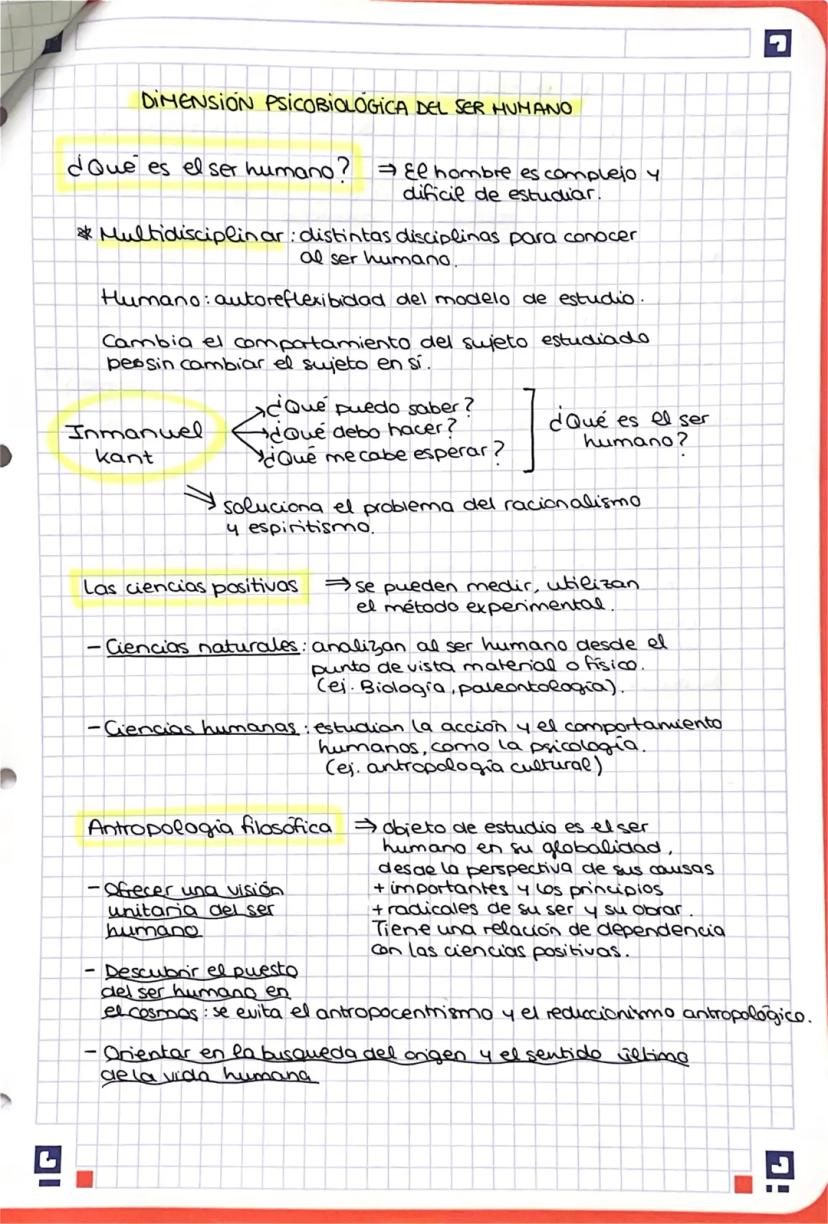 DIMENSIÓN PSICOBIOLÓGICA DEL SER HUMANO
¿Qué es el ser humano? ⇒ El hombre es complejo y
dificil de estudiar.
* Multidisciplinar: distintas disciplinas para conocer
al ser humano.
Humano: autoreflexibidad del modelo de estudio.
Cambia el comportamiento del sujeto estudiado
peo sin cambiar el sujeto en sí.
Inmanuel
Kant
¿Qué puedo saber?
¿Qué debo hacer?
¿Qué me cabe esperar?
¿Qué es el ser
humano?
soluciona el problema del racionalismo
y espiritismo.
Las ciencias positivas ⇒ se pueden medir, utilizan
el método experimental.
- Ciencias naturales: analizan al ser humano desde el
punto de vista material o físico.
(ej. Biología, paleontología).
- Ciencias humanas: estudian la acción y el comportamiento
humanos, como la psicología.
(ej. antropología cultural)
Antropología filosófica ⇒ objeto de estudio es el ser
humano en su globalidad,
desde la perspectiva de sus causas
+ importantes y los principios
+ radicales de su ser y su obrar.
Tiene una relación de dependencia
con las ciencias positivas.
- Ofrecer una visión
unitaria del ser
humano
- Descubrir el puesto
del ser humano en
el cosmos: se evita el antropocentrismo y el reduccionismo antropológico.
- Orientar en la busqueda del origen y el sentido último
de la vida humana